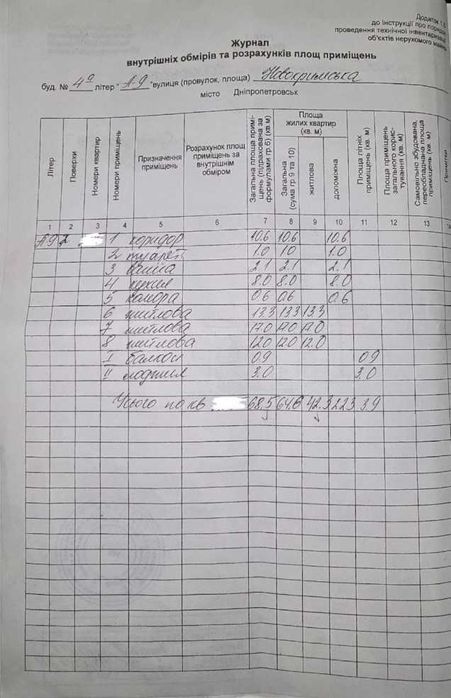 Додаток 1.6
до Інструкції про порядок
проведення технічної інвентаризації
об'єктів нерухомого майна
Журнал
внутрішніх обмірів та розрахунків площ приміщень
буд. № 4а літер "А-9" вулиця (провулок, площа) Новокримська
місто Дніпропетровськ
Літер Поверхи Номери квартир Номери приміщень Призначення приміщень Розрахунок площ приміщень за внутрішнім обміром Загальна площа приміщень (прирахована за формулами гр 6) (кв.м) Площа жилих квартир (кв. м) Загальна (сума гр 9 та 10) житлова допоможна Площа літніх приміщень (кв. м) Площа приміщень загального користування (кв. м) Самовільно збудована, переобладнана площа приміщень (кв. м)
1 2 3 4 5 6 7 8 9 10 11 12 13
А9 2 1 коридор 10.6 10.6 10.6
2 туалет 1.0 1.0 1.0
3 ванна 2.1 2.1 2.1
4 кухня 8.0 8.0 8.0
5 комора 0.6 0.6 0.6
6 житлова 13.3 13.3 13.3
7 житлова 17.0 17.0 17.0
8 житлова 12.0 12.0 12.0
I балкон 0.9 0.9
II лоджия 3.0 3.0
Усього по кв 68.5 64.6 42.3 22.3 3.9